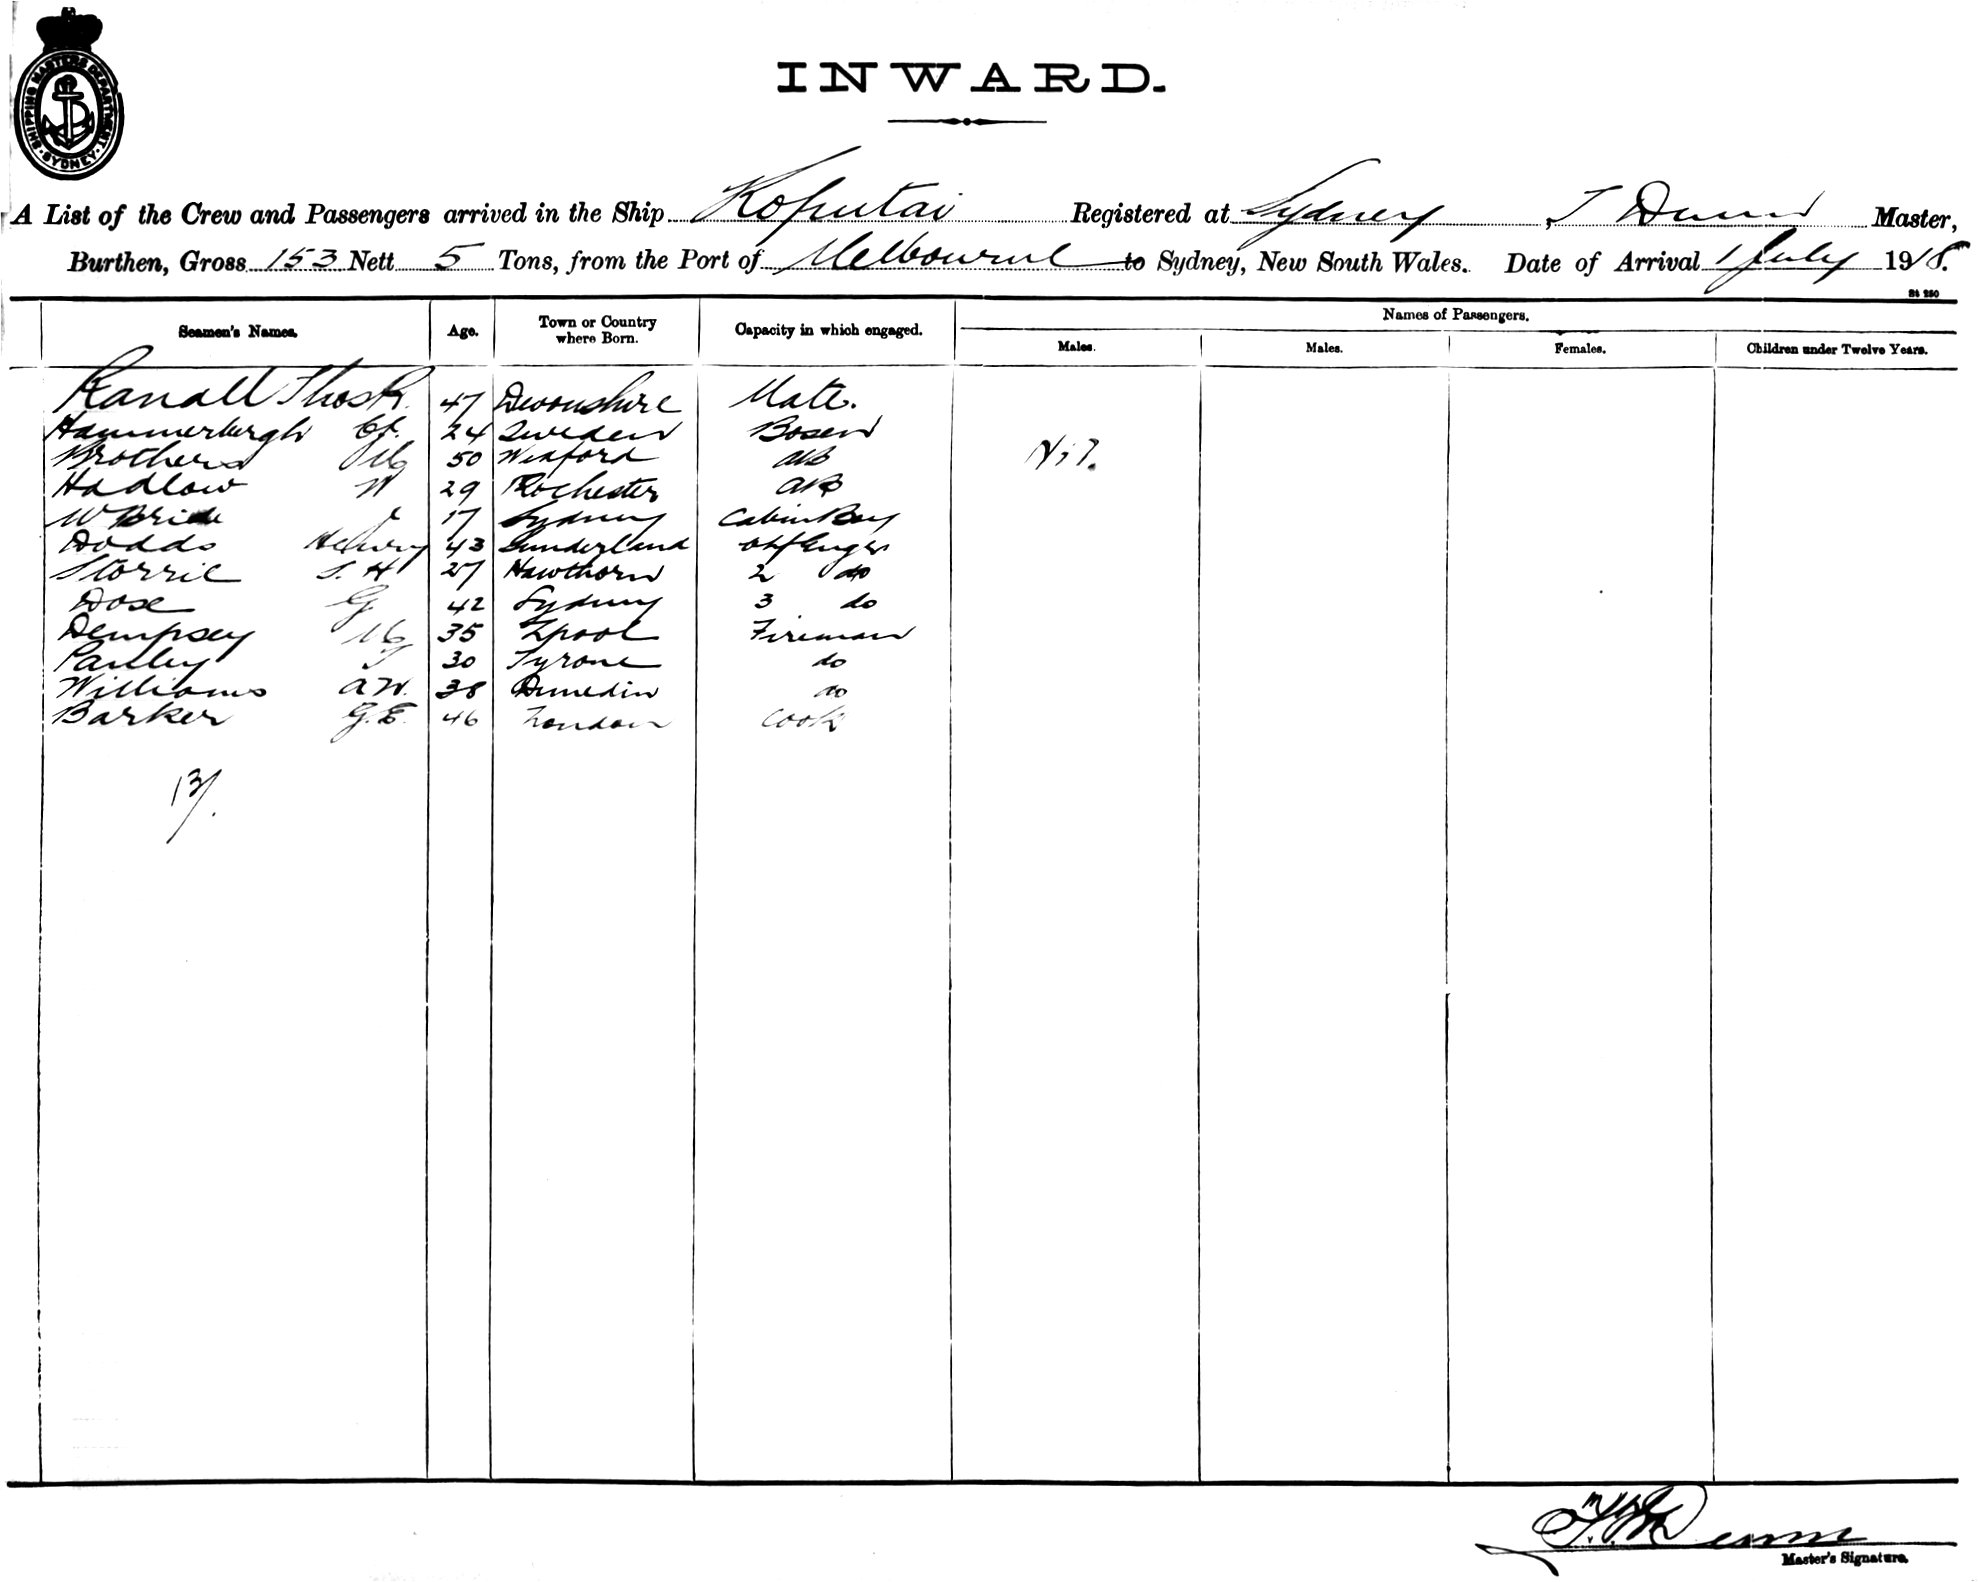 SHIPPING MASTERS DEPARTMENT
SYDNEY
INWARD.
A List of the Crew and Passengers arrived in the Ship Koputai Registered at Sydney, T Dunn Master,
Burthen, Gross 153 Nett 5 Tons, from the Port of Melbourne to Sydney, New South Wales. Date of Arrival 1 July 1918.
St 280
Seamen's Names. Age. Town or Country where Born. Capacity in which engaged. Names of Passengers.
Males. Males. Females. Children under Twelve Years.
Randall Thos R. 47 Devonshire Mate.
Hammerbergh 24 Sweden Bosen
Brothers M 50 Wexford AB Nil.
Hadlow W 29 Rochester AB
McBride J 17 Sydney Cabin Boy
Dodds Henry 43 Sunderland Chf Engr
Storrie S. H 27 Hawthorn 2 do
Dose G 42 Sydney 3 do
Dempsey M 35 Lpool Fireman
Pauley T 30 Tyrone do
Williams A.W. 38 Dunedin do
Barker G.E. 46 London Cook
13/.
Dunn
Master's Signature.